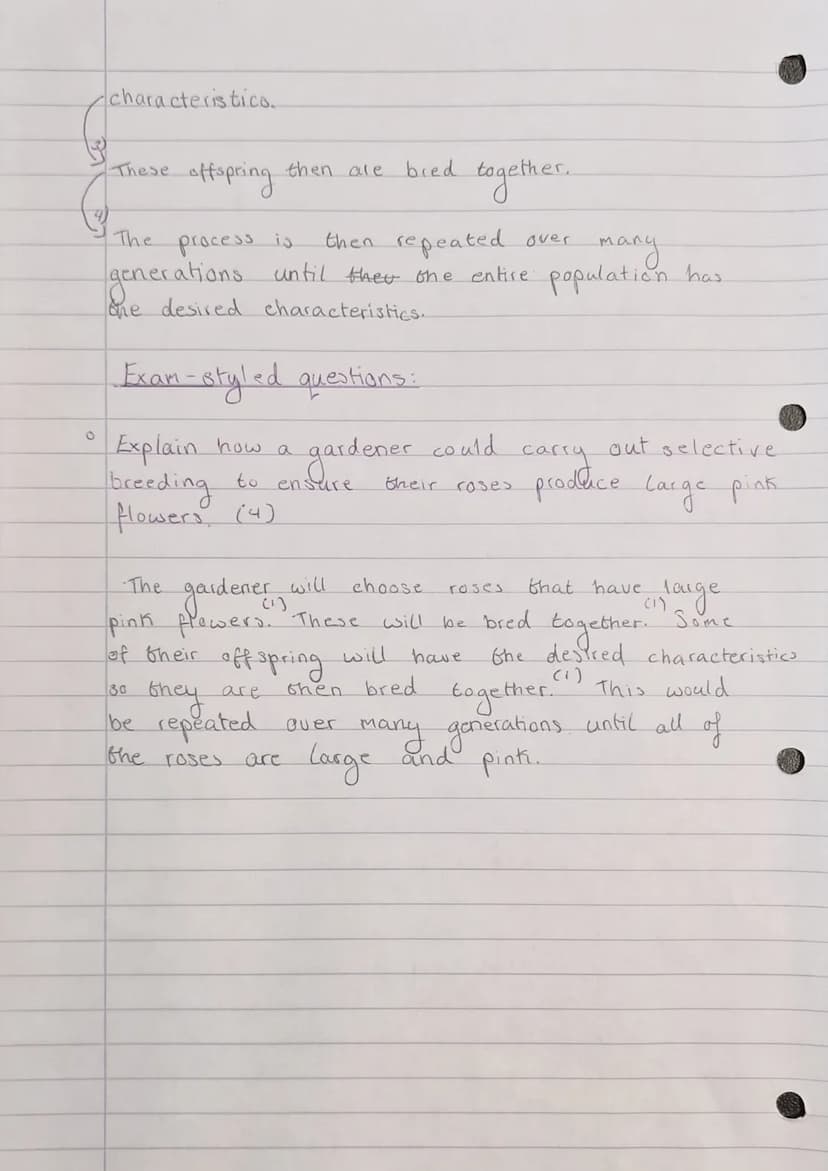 characteristics.
3)
These offspring then are bred together.
4)
The process is then repeated over many
generations until the entire population has
the desired characteristics.
Exam-styled questions:
Explain how a gardener could carry out selective
breeding to ensure their roses produce large pink
flowers. (4)
The gardener will choose roses that have large
pink flowers. (1) These will be bred together. (1) Some
of their offspring will have the desired characteristics
so they are then bred together. (1) This would
be repeated over many generations until all of
the roses are large and pink.